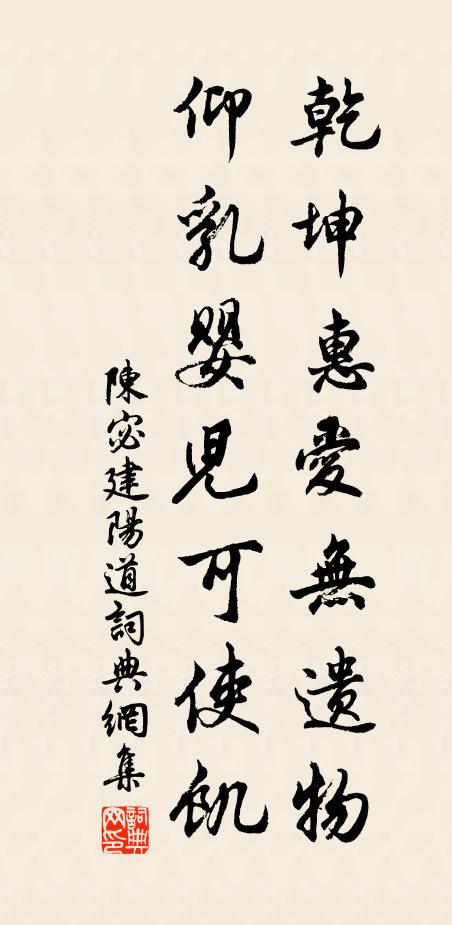 乾坤惠愛無遺物
仰乳嬰兒可使飢
陳宓建陽道詞典網集
詞典网印